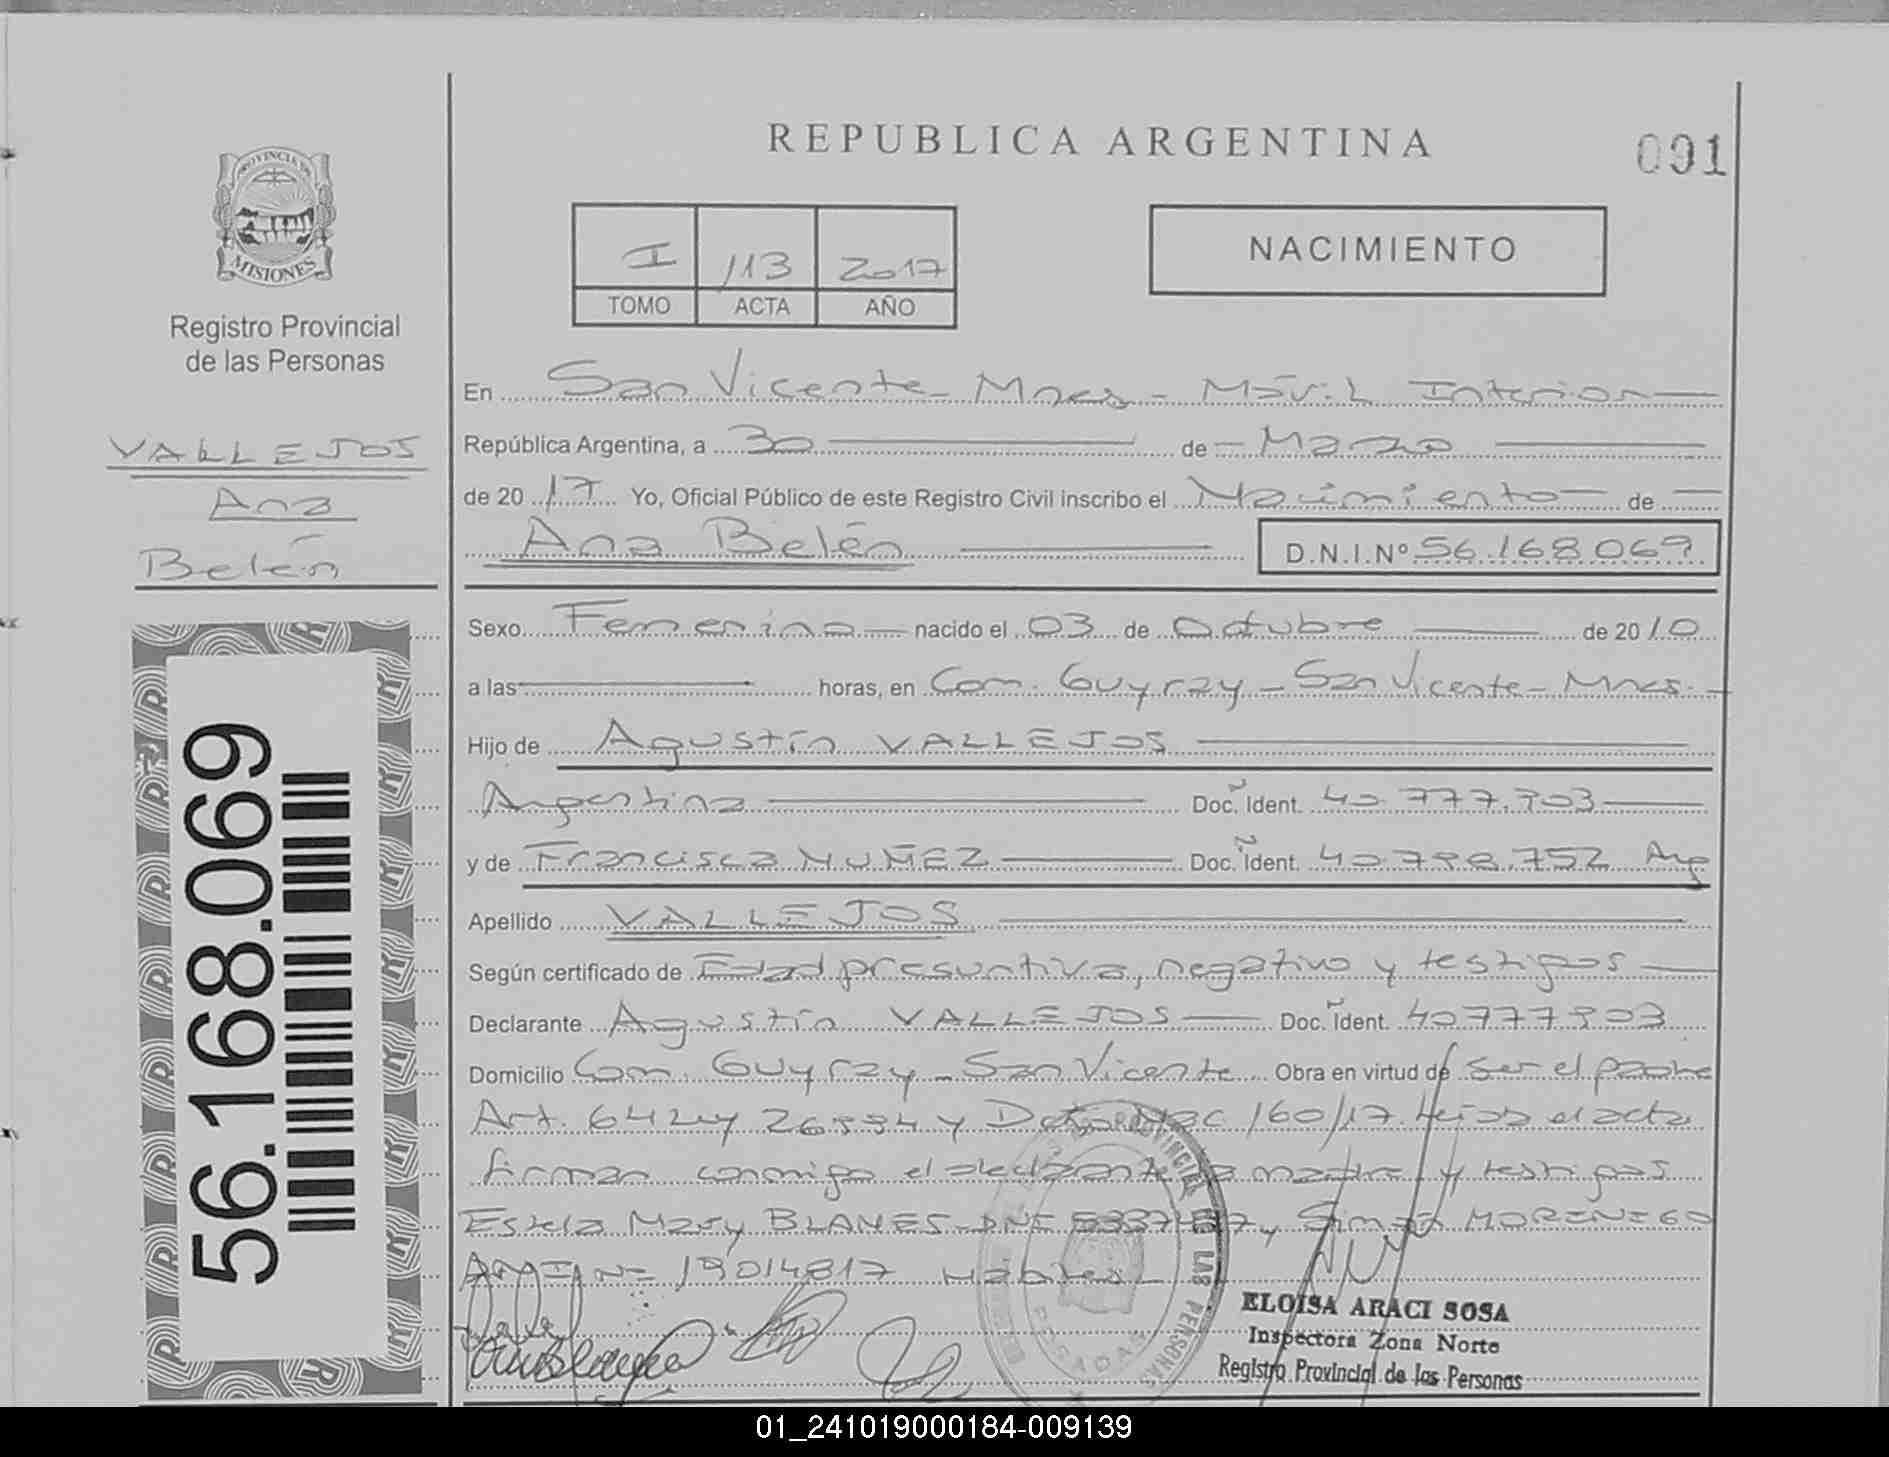 REPUBLICA ARGENTINA
091
PROVINCIA DE
MISIONES
Registro Provincial
de las Personas
I 113 2017
TOMO ACTA AÑO
NACIMIENTO
VALLEJOS
Ana
Belén
En San Vicente - Mnes - Móvil Interior
República Argentina, a 30 de Marzo
de 2017 Yo, Oficial Público de este Registro Civil inscribo el Nacimiento de
Ana Belén
D.N.I.Nº 56.168.069
Sexo Femenino nacido el 03 de Octubre de 2010
a las horas, en Com. Guyray - San Vicente - Mnes.
Hijo de Agustín VALLEJOS
Argentina Doc. Ident. 40.777.903
y de Francisca NUÑEZ Doc. Ident. 40.798.752 Arg
Apellido VALLEJOS
Según certificado de Edad presuntiva, negativo y testigos
Declarante Agustín VALLEJOS Doc. Ident. 40777903
Domicilio Com. Guyray - San Vicente Obra en virtud de ser el padre
Art. 64 Ley 26994 y Dcto Nac 160/17. Leída el acta
firman conmigo el declarante la madre y testigos
Estela Mary BLANES DNI y MORINIGO
DNI Nº 19014817 Hábiles
56.168.069
PROVINCIAL DE LAS PERSONAS
POSADAS
ELOISA ARACI SOSA
Inspectora Zona Norte
Registro Provincial de las Personas
01_241019000184-009139